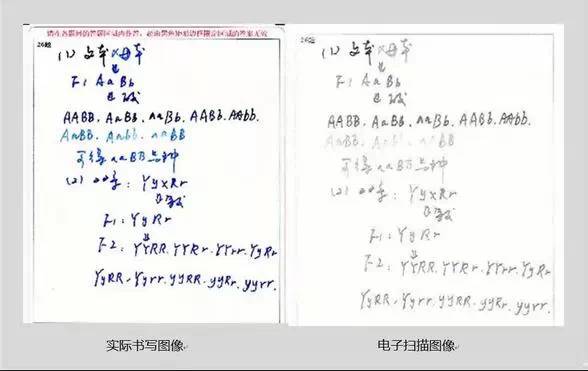 请在各题目的答题区域内作答，超出黑色矩形边框限定区域的答案无效
26题
(1) 父本×母本
F1 AaBb
自交
AABB. AaBb. aaBb. AABb. AAbb.
AaBB. Aabb. aaBB
可得aaBB品种
(2) 双亲: Yy×Rr
自交
F1: YyRr
F2: YYRR. YYRr. YYrr. YyRr
YyRR. Yyrr. yyRR. yyRr. yyrr.
26题
(1) 父本×母本
F1 AaBb
自交
AABB. AaBb. aaBb. AABb. AAbb.
可得aaBB品种
(2) 双亲: Yy×Rr
自交
F1: YyRr
F2: YYRR. YYRr. YYrr. YyRr
YyRR. Yyrr. yyRR. yyRr. yyrr.
实际书写图像
电子扫描图像